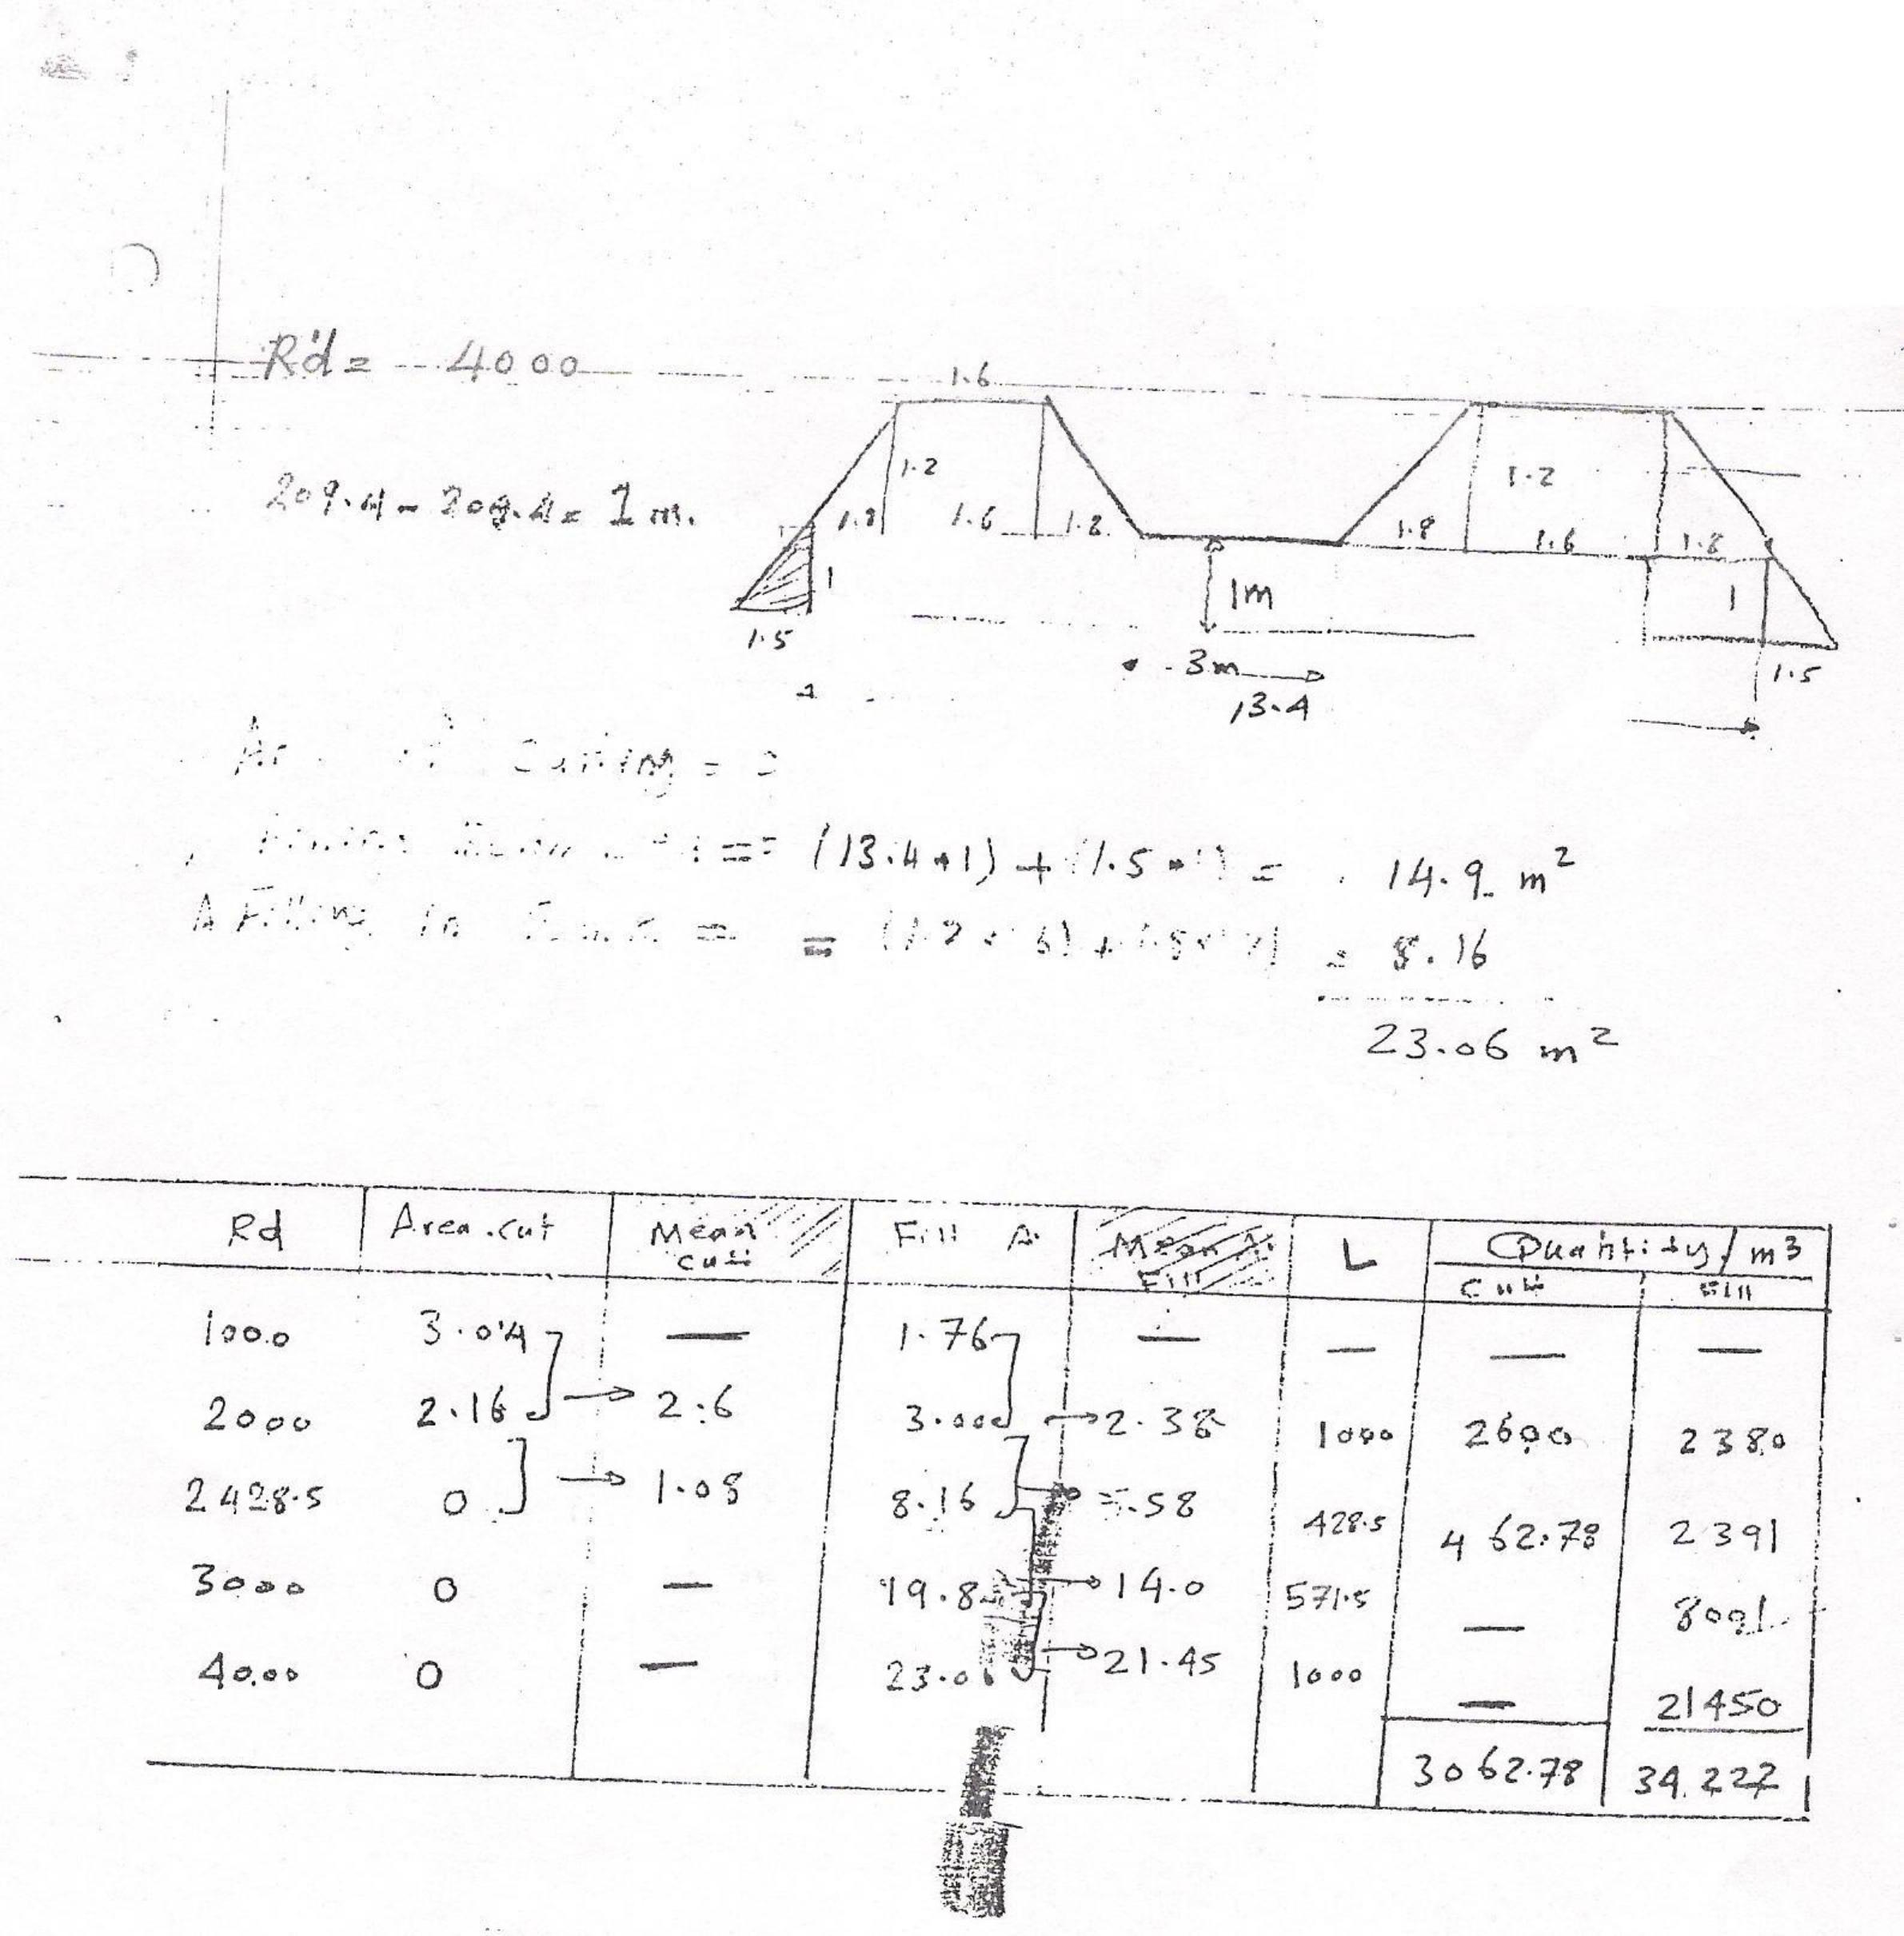 R'd = 4000
1.6
209.4 - 208.4 = 1 m.
1.2
1.2
1.8 1.6 1.8 1.8 1.6 1.8
1 1m 1
1.5 3m 1.5
13.4
Cutting = 0
= (13.4*1) + (1.5*1) = 14.9 m²
A Filling in = 8.16
23.06 m²
Rd Area.cut Mean cut Fill A. Mean A. Fill L Quantity/m3
Cut Fill
1000 3.04 — 1.76 — — — —
2000 2.16 → 2.6 3.000 → 2.38 1000 2600 2380
2428.5 0 → 1.08 8.16 5.58 428.5 462.78 2391
3000 0 — 19.8 → 14.0 571.5 — 8001
4000 0 — 23.06 → 21.45 1000 — 21450
3062.78 34.222